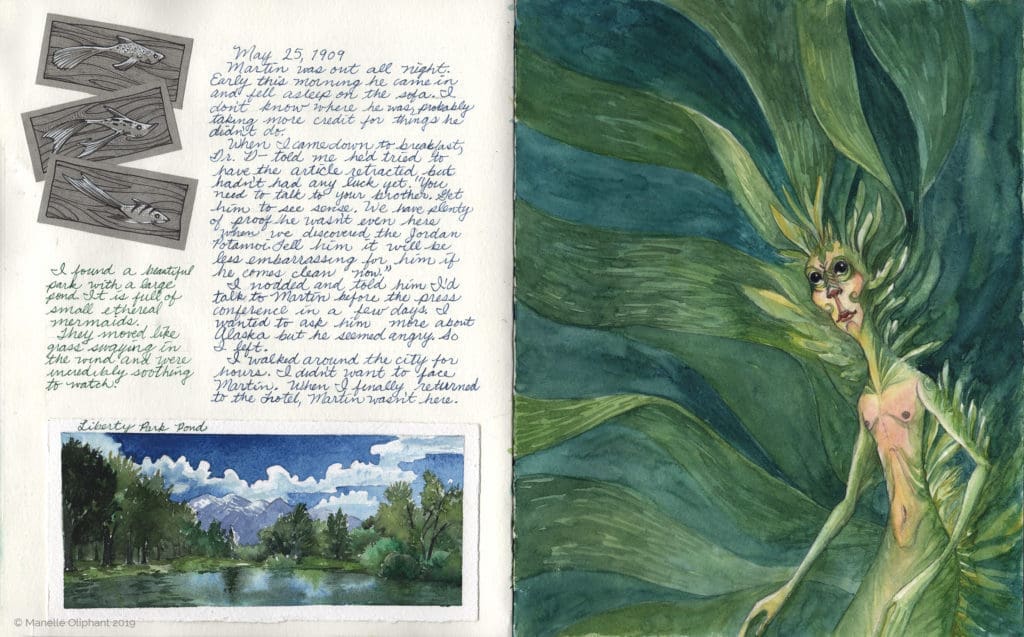 May 25, 1909
Martin was out all night.
Early this morning he came in
and fell asleep on the sofa. I
dont know where he was, probably
taking more credit for things he
didn't do.
When I came down to breakfast,
Dr. D- told me he'd tried to
have the article retracted but
hadn't had any luck yet. "You
need to talk to your brother. Get
him to see sense. We have plenty
of proof he wasn't even here
when we discovered the Jordan
Potamoi. Tell him it will be
less embarrassing for him if
he comes clean now."
I nodded and told him I'd
talk to Martin before the press
conference in a few days. I
wanted to ask him more about
Alaska but he seemed angry. So
I left.
I walked around the city for
hours. I didn't want to face
Martin. When I finally returned
to the hotel, Martin wasn't here.
I found a beautiful
park with a large
pond. It is full of
small ethereal
mermaids.
They moved like
grass swaying in
the wind and were
incredibly soothing
to watch.
Liberty Park Pond
© Manelle Oliphant 2019